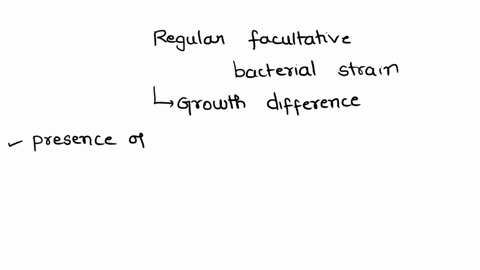 Regular facultative
bacterial strain
↳ Growth difference
✓ presence of